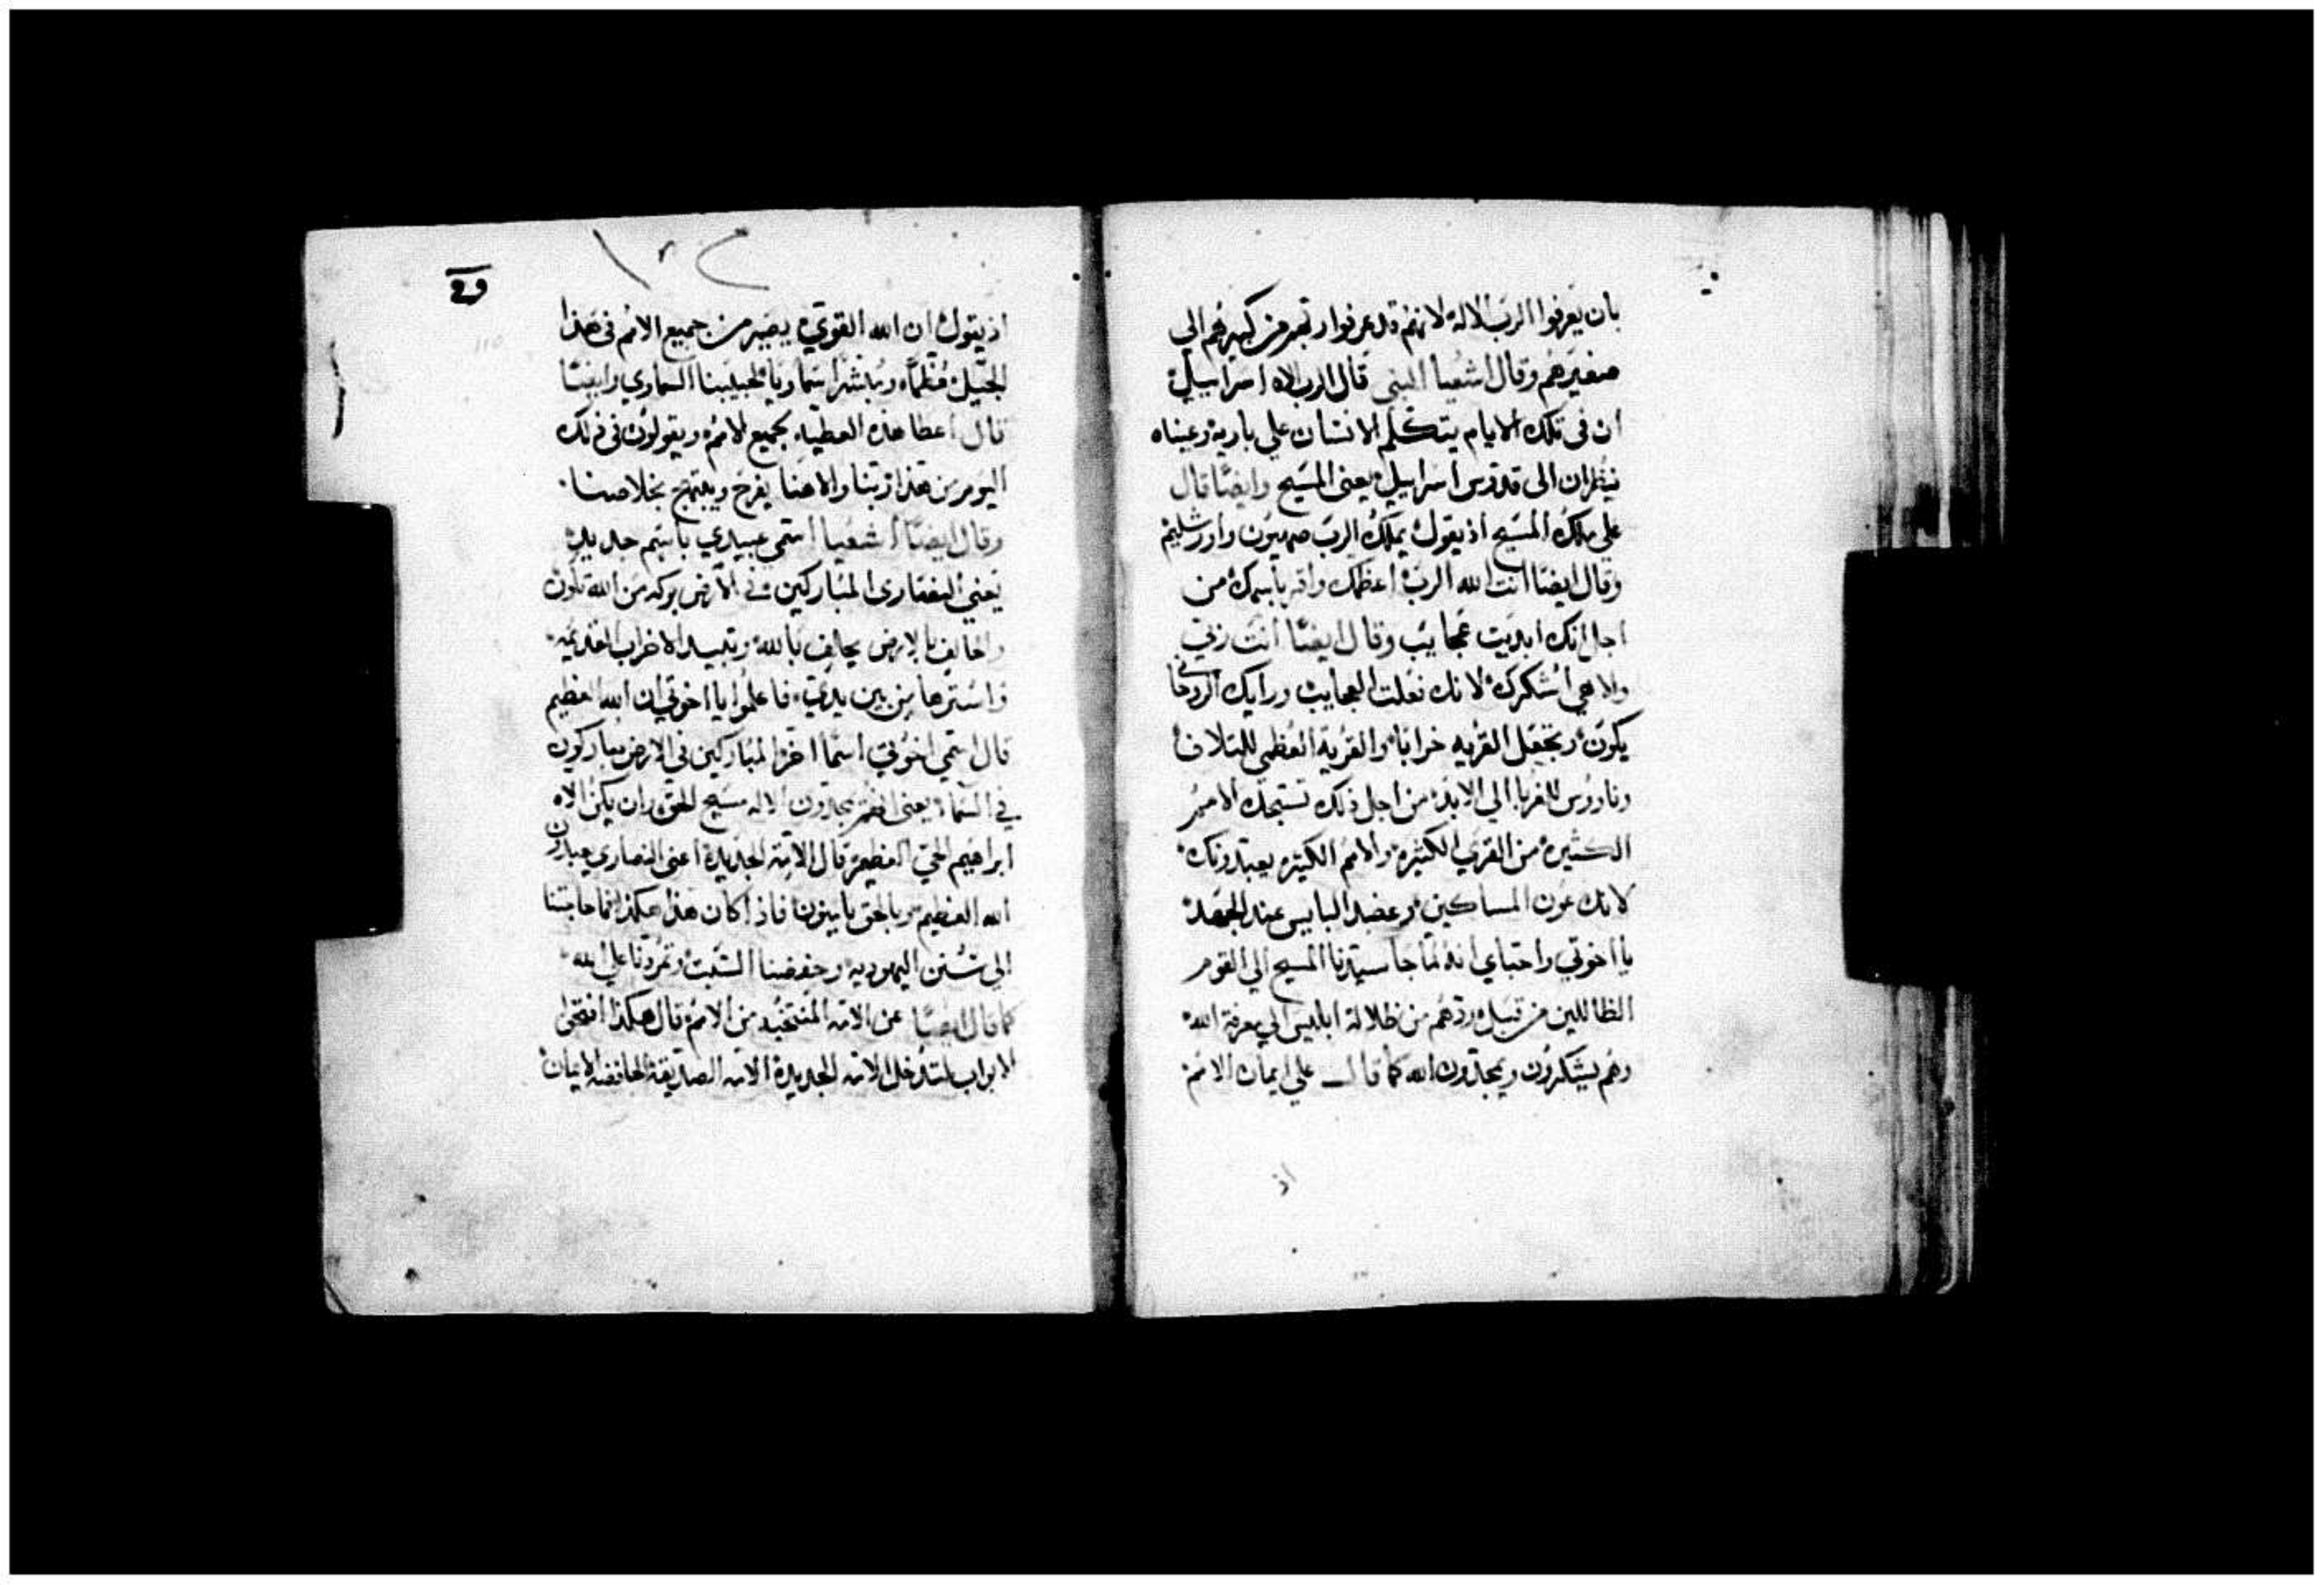 بان يعرفوا الرب الاله لانهم قد عرفوا ربهم من كبيرهم الي
صغيرهم وقال اشعيا النبي قال الرب الاه اسراييل
ان في تلك الايام يتكلم الانسان علي باريه وعيناه
ينظران الى قدوس اسراييل يعني المسيح وايضا قال
علي ملك المسيح اذ يقول يملك الرب صهيون واورشليم
وقال ايضا انت الله الرب اعظمك واقر باسمك من
اجل انك ابديت عجايب وقال ايضا انت ربي
والاهي اشكرك لانك فعلت العجايب ورايك
يكون وتجعل القريه خرابا والقرية العظمي للتلاف
للغربا الي الابد من اجل ذلك تسبحك الامم
الكثيره من القري الكثيره والامم الكثيره يعبدونك
لانك عون المساكين وعضد البايس عند الجهد
يا اخوتي واحباي انه لما جا سيدنا المسيح الي القوم
الظاللين من قبل ردهم من ظلالة ابليس الي معرفة الله
وهم يشكرون ويمجدون الله كما قال علي ايمان الامم
اذ
اذ يقول ان الله القوي يصير من جميع الامم في هذا
الجبل السماوي وايضا
قال اعطا هذه العطيه لجميع الامم ويقولون في ذلك
اليوم من هذا ربنا والاهنا يفرح ويبتهج بخلاصنا
وقال ايضا اشعيا اسمي عبيدي باسم جديد
يعني النصاري المباركين في الارض بركه من الله تكون
بالارض يحلف بالله القديمه
واسترها من بين يدي فاعلموا يا اخوتي ان الله العظيم
قال اسمي اخوتي اسما اخر المباركين في الارض يباركون
في السما يعني انهم يمجدون الاله مسيح الحق وان يكن الاه
ابراهيم الحي العظيم قال الامة الجديدة اعني النصاري يعبدون
الله العظيم وبالحق يا بينون فاذا كان هذا هكذا فما حاجتنا
الي سنن اليهوديه وحفضنا السبت وتمردنا علي الله
كما قال ايضا عن الامه المنتخبه من الامم قال هكذا افتحي
الابواب لتدخل الامه الجديدة الامه الصديقة الحافضه الايمان